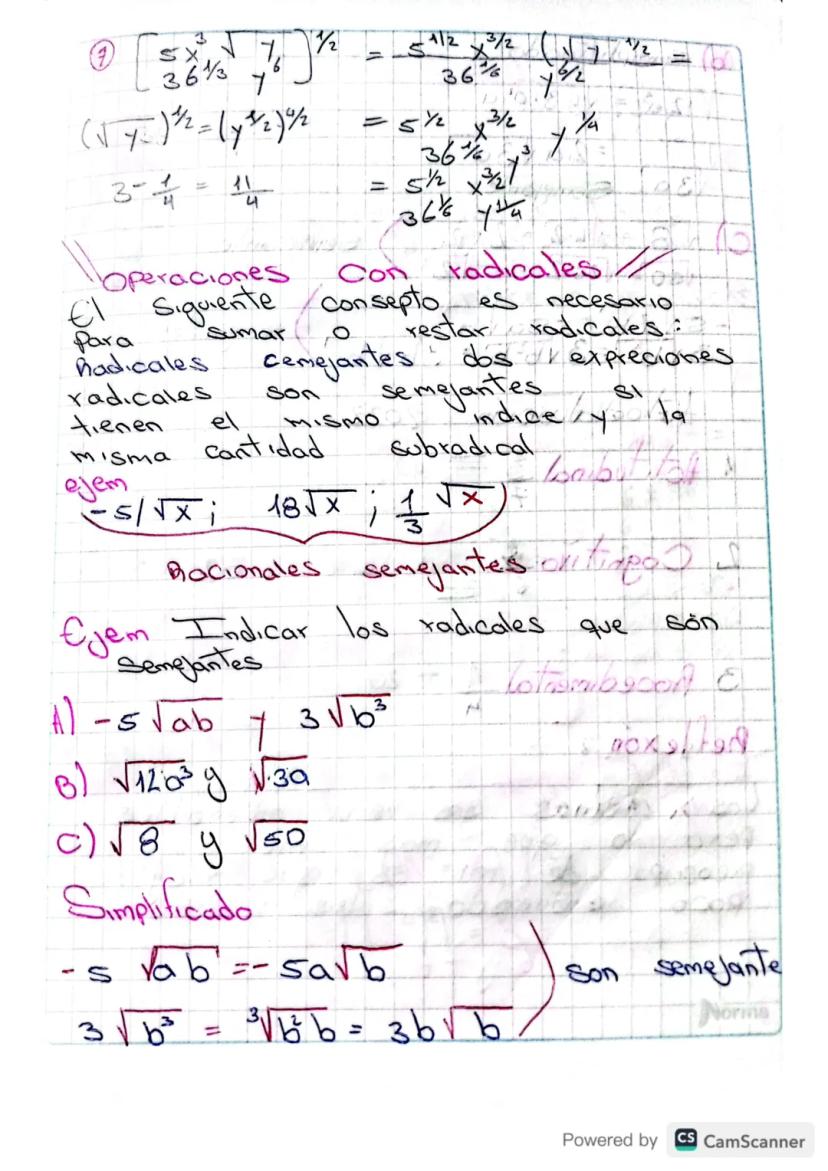 7 [5x³ √y / 36^1/3 y⁶]^1/2 = 5^1/2 x^3/2 (√y)^1/2 / 36^1/6 y^6/2 =
(√y)^1/2 = (y^1/2)^1/2 = 5^1/2 x^3/2 y^1/4 / 36^1/6 y³
3 - 1/4 = 11/4 = 5^1/2 x^3/2 / 36^1/6 y^11/4
\\operaciones Con radicales //
El Siguiente consepto es necesario
para sumar o restar radicales:
Radicales cemejantes: dos expreciones
radicales son semejantes si
tienen el mismo indice y la
misma cantidad subradical
ejem
-5/√x ; 18√x ; 1/3 √x
Racionales semejantes
Ejem Indicar los radicales que són
semejantes
A) -5 √ab y 3√b³
B) √12a³ y √3a
C) √8 y √50
Simplificado
-5 √ab = -5a√b
son semejante
3 √b³ = ³√b² b = 3b √b
Norma
Powered by CS CamScanner